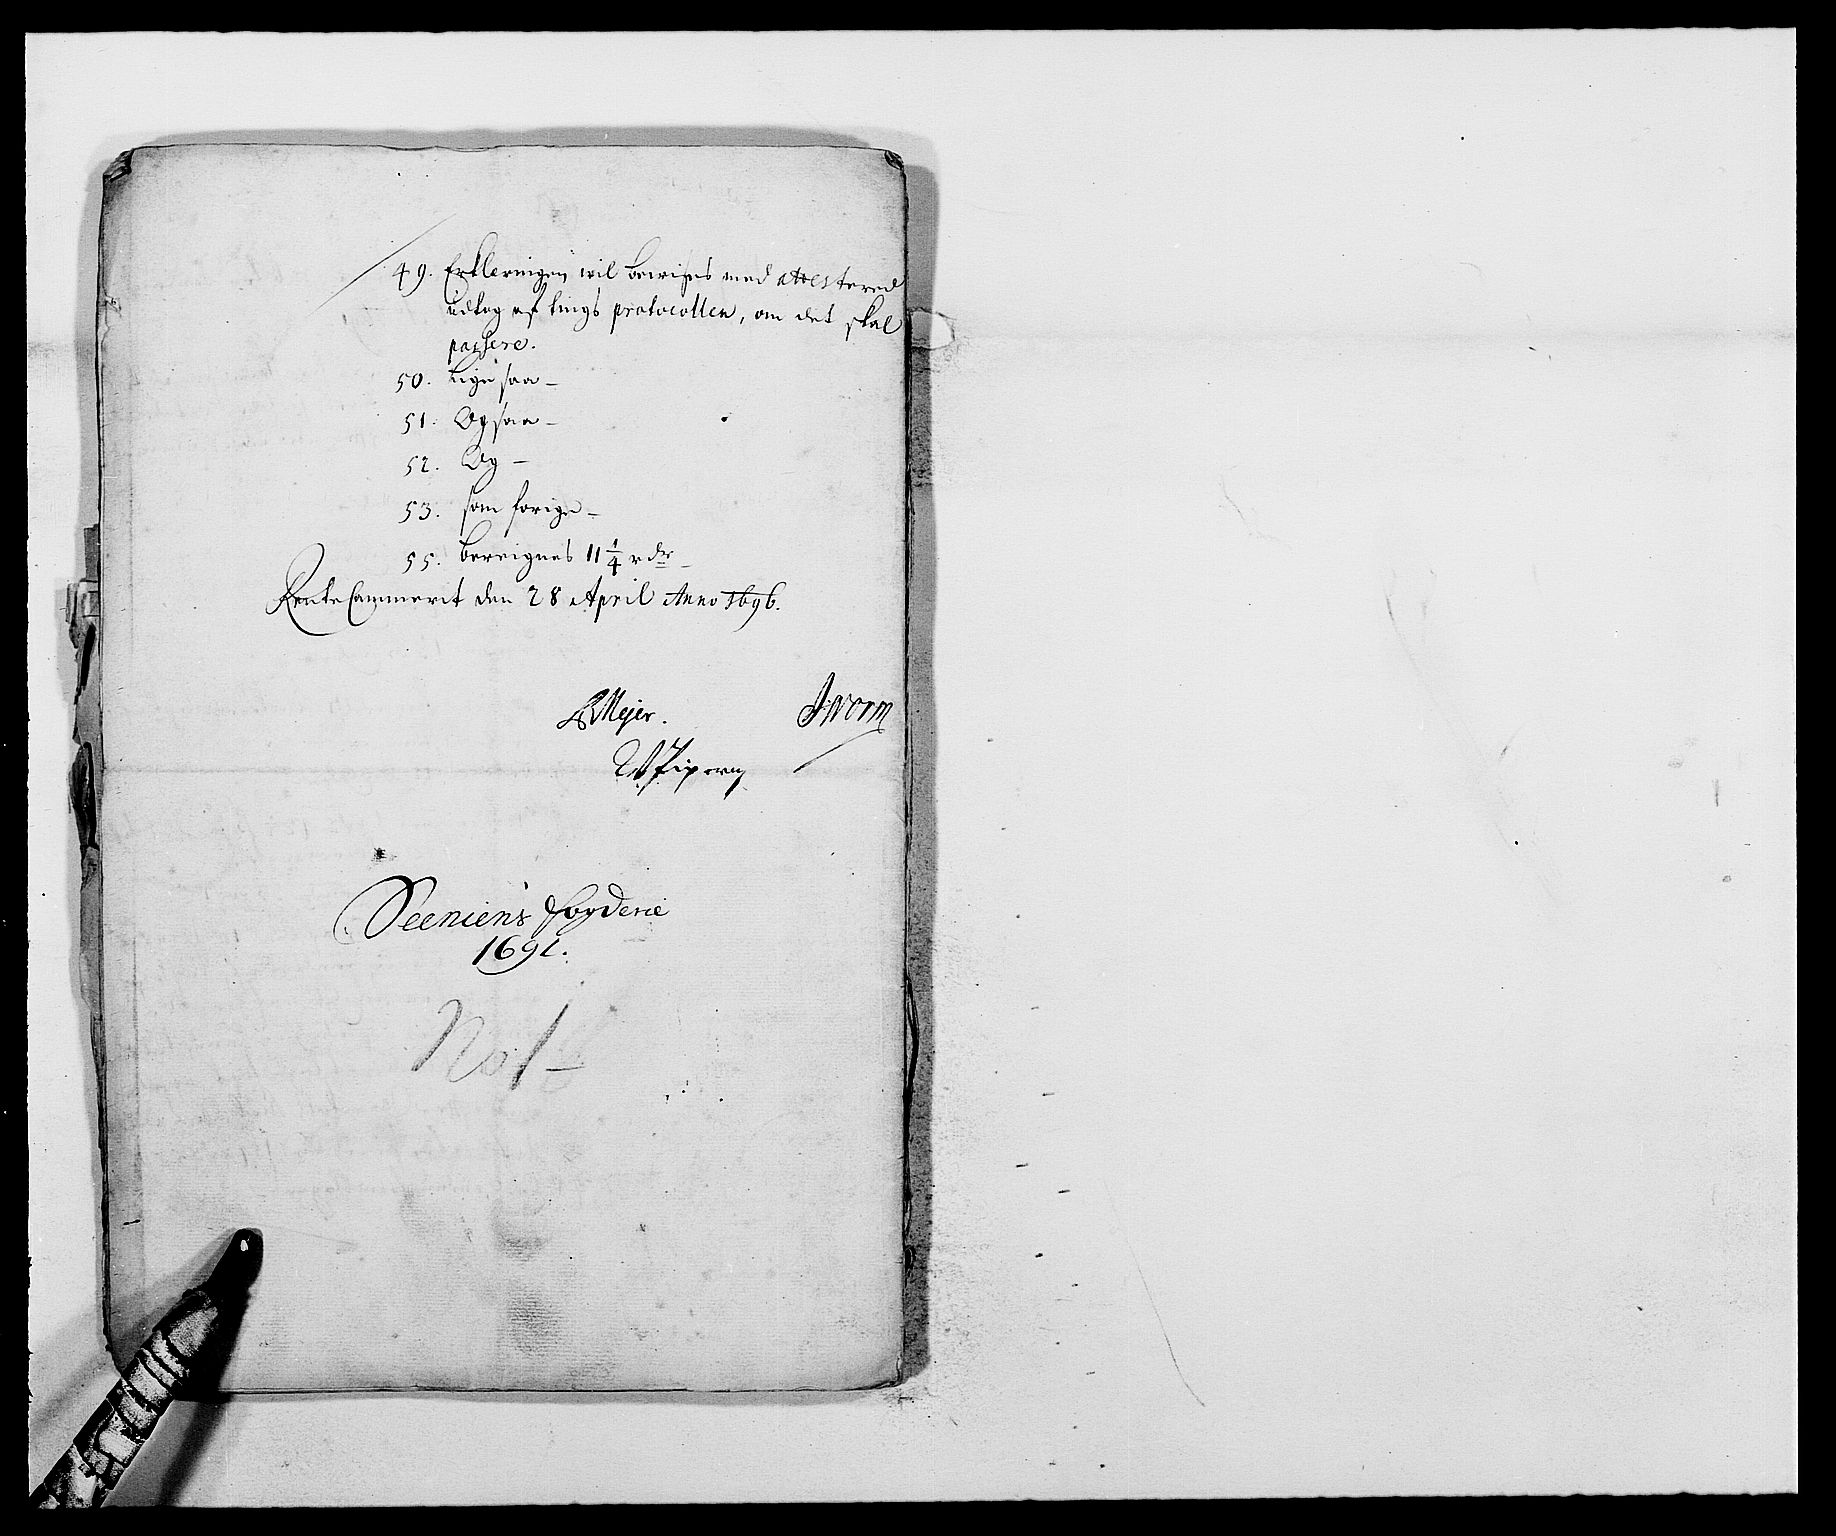 49. Erkleringen wil bewises med attestered
udtog af tings protocollen, om det skal
passere.
50. Lige saa –
51. Og saa –
52. Og –
53. som forige –
55. bereignes 11 1/4 rdr –
RenteCammerit den 28 April Anno 1696.
Mejer. JWorm
Seeniens fogderie
1691.
No 1